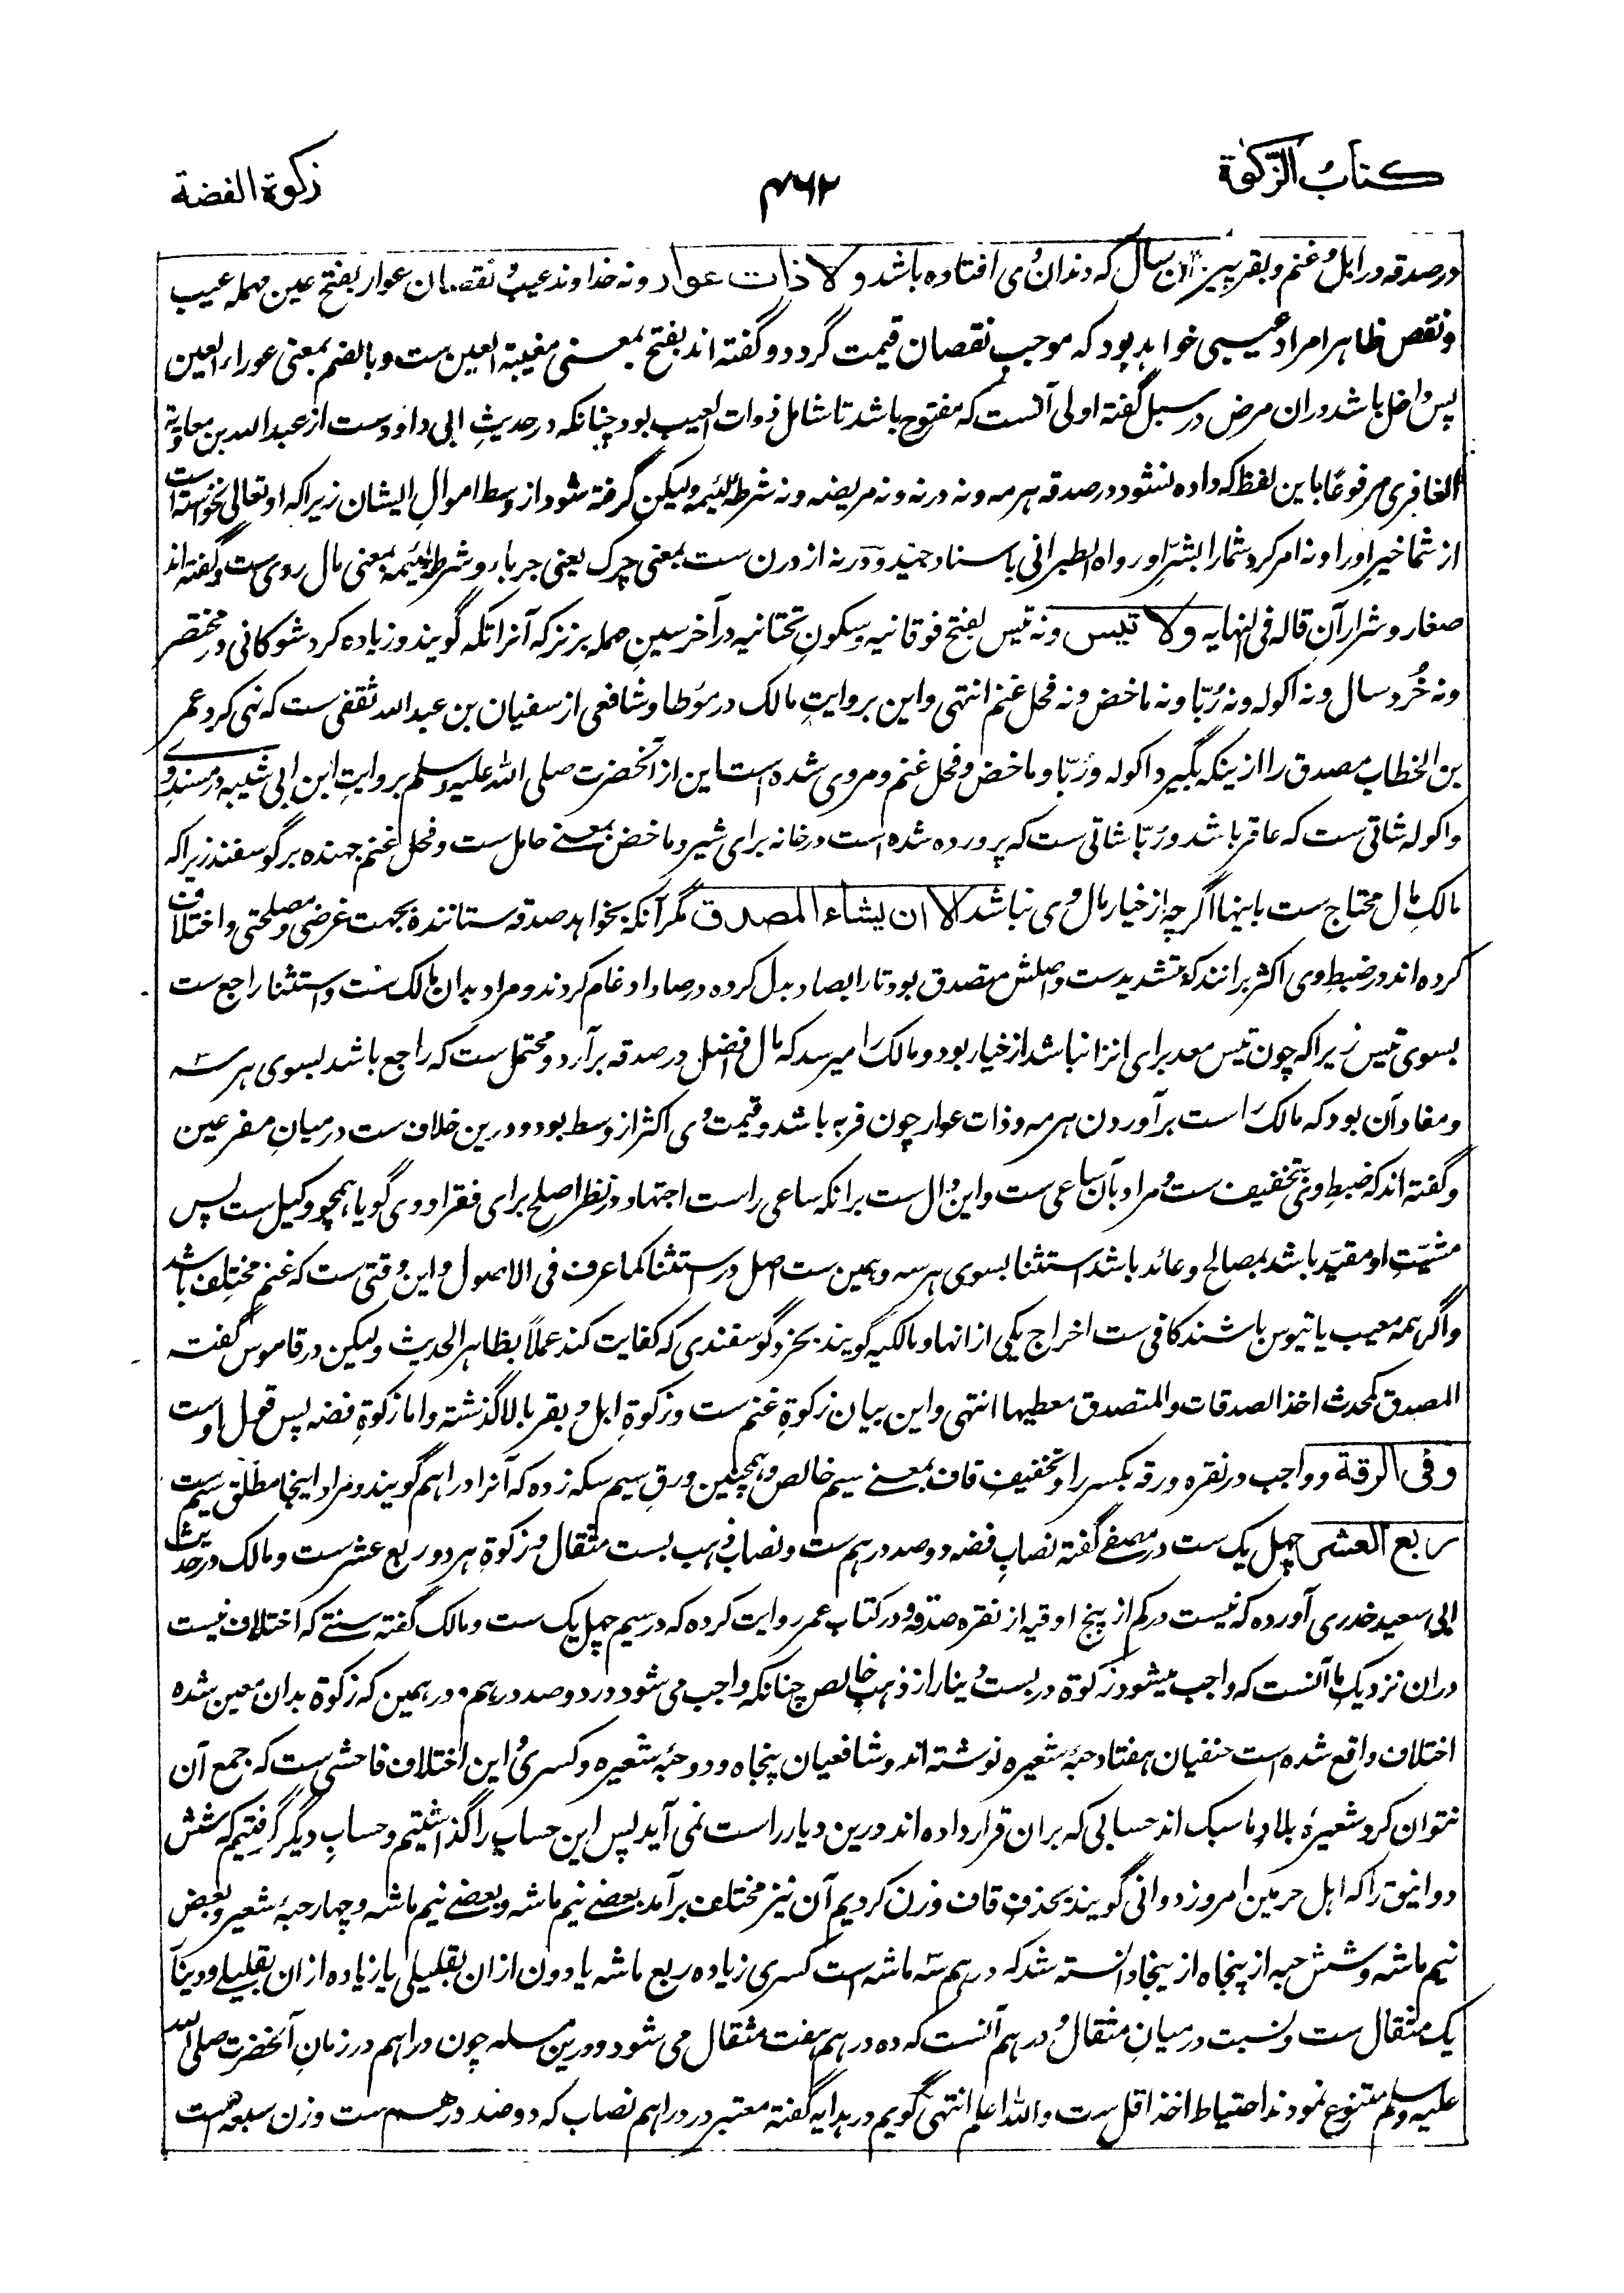 کتاب الزکوٰة
۴۶۲
زکوة الفضة
درصدقه در ابل و غنم و بقر پیر آن سال که دندان وی افتاده باشد ولا ذات عوار ونه خداوند عیب و نقصان عوار بفتح عین مهمله عیب
ونقص ظاهرا مراد عیبی خواهد بود که موجب نقصان قیمت گردد و گفته اند بفتح بمعنی معیبة العین ست و بالضم بمعنی عوراء العین
پس داخل باشد دران مرض در سبل گفته اولی آنست که مفتوح باشد تا شامل ذوات العیب بود چنانکه در حدیث ابی داود ست از عبدالله بن معاویة
الغافری مرفوعًا باین لفظ که داده نشود در صدقه هرمه و نه درنه و نه مریضه و نه شرطلئیمه ولیکن گرفته شود از وسط اموال ایشان زیراکه او تعالی نخواسته است
از شما خیر او را و نه امر کرد شما را بشرّ او رواه الطبرانی باسناد جیّد و درنه از درن ست بمعنی چرک یعنی جرباء و شرطلئیمه بمعنی مال ردی ست و گفته اند
صغار و شرار آن قاله فی النهایه ولا تیس ونه تیس بفتح فوقانیه وسکون تحتانیه در آخر سین مهمله بز نر که آنرا تکه گویند و زیاده کرد شوکانی در مختصر
ونه خُرد سال ونه اکوله ونه رُبّا ونه ماخض ونه فحل غنم انتهی و این بروایت مالک در مؤطا و شافعی از سفیان بن عبدالله ثقفی ست که نهی کرد عمر
بن الخطاب مصدق را ازینکه بگیرد اکوله و رُبّا و ماخض و فحل غنم و مروی شده است این از آنحضرت صلی الله علیه وسلم بروایت ابن ابی شیبه در مسند وی
واکوله شاتی ست که عاقر باشد و رُبّا شاتی ست که پرورده شده است در خانه برای شیر و ماخض بمعنے حامل ست و فحل غنم جهنده بر گوسفند زیراکه
مالکِ مال محتاج ست باینها اگرچه از خیار مال وی نباشد الا ان یشاء المصدق مگر آنکه بخواهد صدقه ستاننده بجهت غرضی و مصلحتی و اختلاف
کرده اند در ضبط وی اکثر برانند که بتشدیدست و اصلش متصدق بود تا را بصاد بدل کرده در صاد ادغام کردند و مراد بدان مالک ست و استثنا راجع ست
بسوی تیس زیراکه چون تیس معد برای انزا نباشد از خیار بود و مالک را میرسد که مال افضل در صدقه برآرد و محتمل ست که راجع باشد بسوی هر سه
ومفاد آن بود که مالک را ست برآوردن هرمه و ذات عوار چون فربه باشد و قیمت وی اکثر از وسط بود و درین خلاف ست در میان مفرعین
وگفته اند که ضبط وی بتخفیف ست و مراد بآن ساعی ست و این دال ست برانکه ساعی راست اجتهاد در نظر اصلح برای فقرا و وی گویا همچو وکیل ست پس
مشیّت او مقیّد باشد بمصالح و عائد باشد استثنا بسوی هر سه و همین ست اصل در استثنا کما عرف فی الاصول و این وقتی ست که غنم مختلف باشد
واگر همه معیب یا تیوس باشند کافی ست اخراج یکی از انها و مالکیه گویند بخرد گوسفندی که کفایت کند عملاً بظاهر الحدیث ولیکن در قاموس گفته
المصدق کمحدث اخذ الصدقات والمتصدق معطیها انتهی و این بیان زکوة غنم ست و زکوة ابل و بقر بالا گذشته و اما زکوة فضه پس قول اوست
وفی الرقة و واجب در نقره ورقه بکسر را و تخفیف قاف بمعنے سیم خالص و همچنین ورق سیم سکه زده که آنرا دراهم گویند و مراد اینجا مطلق سیم ست
ربع العشر چهل یک ست در مصفے گفته نصاب فضه دو صد درهم ست و نصاب ذهب بست مثقال و زکوة هر دو ربع عشرست و مالک در حدیث
ابی سعید خدری آورده که نیست در کم از پنج اوقیه از نقره صدقه و در کتاب عمر روایت کرده که در سیم چهل یک ست و مالک گفته سنتے که اختلاف نیست
دران نزدیک ما آنست که واجب میشود زکوة در بست دینار از ذهب خالص چنانکه واجب می شود در دو صد درهم و درهمین که زکوة بدان معین شده
اختلاف واقع شده است حنفیان هفتاد حبّه شعیره نوشته اند و شافعیان پنجاه و دو حبّه شعیره و کسری و این اختلاف فاحشی ست که جمع آن
نتوان کرد شعیرۀ بلاد ما سبک اند حسابی که بران قرار داده اند درین دیار راست نمی آید پس این حساب را گذاشتیم و حساب دیگر گرفتیم که شش
دوانیق را که اهل حرمین امروز دوانی گویند بحذف قاف وزن کردیم آن نیز مختلف برآمد بعضے نیم ماشه و بعضے نیم ماشه و چهار حبۀ شعیر و بعض
نیم ماشه و شش حبه از پنجاه از ینجا دانسته شد که درهم سه ماشه است کسری زیاده ربع ماشه یا دون ازان بقلیلی یا زیاده ازان بقلیلے و دینار
یک مثقال ست و نسبت درمیان مثقال و درهم آنست که ده درهم هفت مثقال می شود و درین مسله چون دراهم در زمان آنحضرت صلی الله
علیه وسلم متنوع نمودند احتیاط اخذ اقل ست والله اعلم انتهی گویم در هدایه گفته معتبر در دراهم نصاب که دو صد درهم ست وزن سبعه است